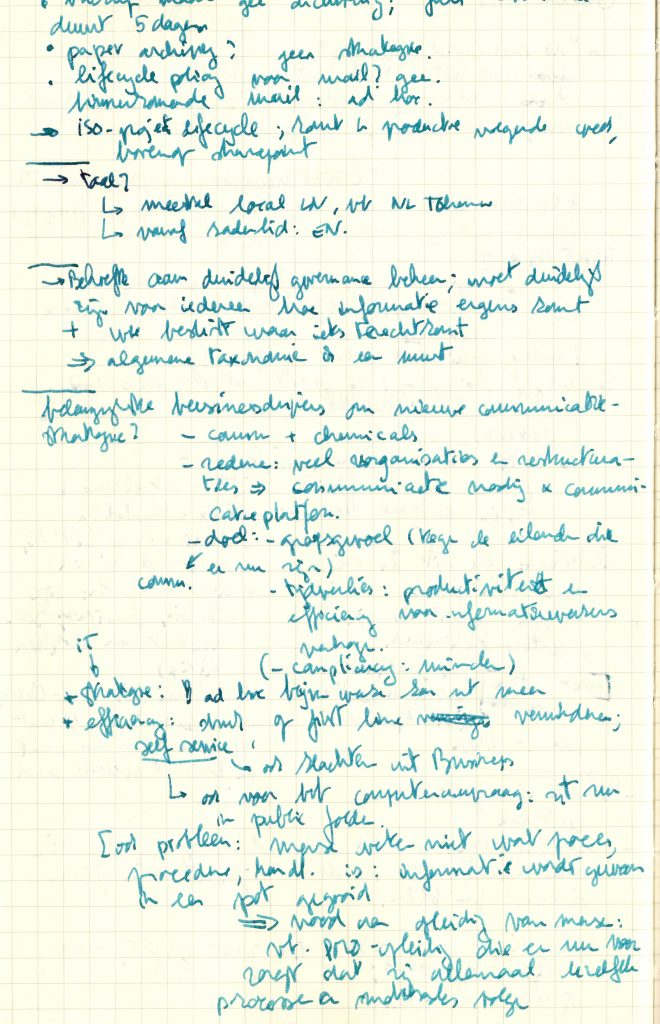 duurt 5 dagen
• paper archiving? geen strategie.
• lifecycle policy voor mail? gee.
binnenkomende mail: ad hoc.
→ ISO-projekt lifecycle; komt in productie volgende week,
bovenop sharepoint
→ taal?
↳ meestal local LN, vb NL
↳ vanaf kaderlid: EN.
→ Behoefte aan duidelijk governance beheer; moet duidelijk
zijn voor iedereen hoe informatie ergens komt
+ wie beslist waar iets terechtkomt
⇒ algemene taxonomie is een must
belangrijkste businessdrijvers om nieuwe communicatie-
strategie?
- comm + chemicals
- redene: veel reorganisaties en restructura-
ties ⇒ communicatie nodig & communi-
catieplatform.
- doel: - groepsgevoel (tegen de eilanden die
er nu zijn)
comm.
- tijdverlies: productiviteit en
efficiency voor informatiewerkers
verhoge.
(- compliancy: minder)
IT
+ strategie: ad hoc bijen waren kan nt meer
+ efficiency: druk op first line verminderen;
self service
↳ ook klachten uit Business
↳ ook voor bvb computeraanvraag: zit nu
in public folder.
[ook probleem: mense weten niet wat proces,
procedure, handl. is: informatie wordt gewoon
in een pot gegooid
⇒ nood aan opleiding van mense:
vb. pro-opleiding die er nu voor
zorgt dat zij allemaal dezelfde
processen en methodes volge